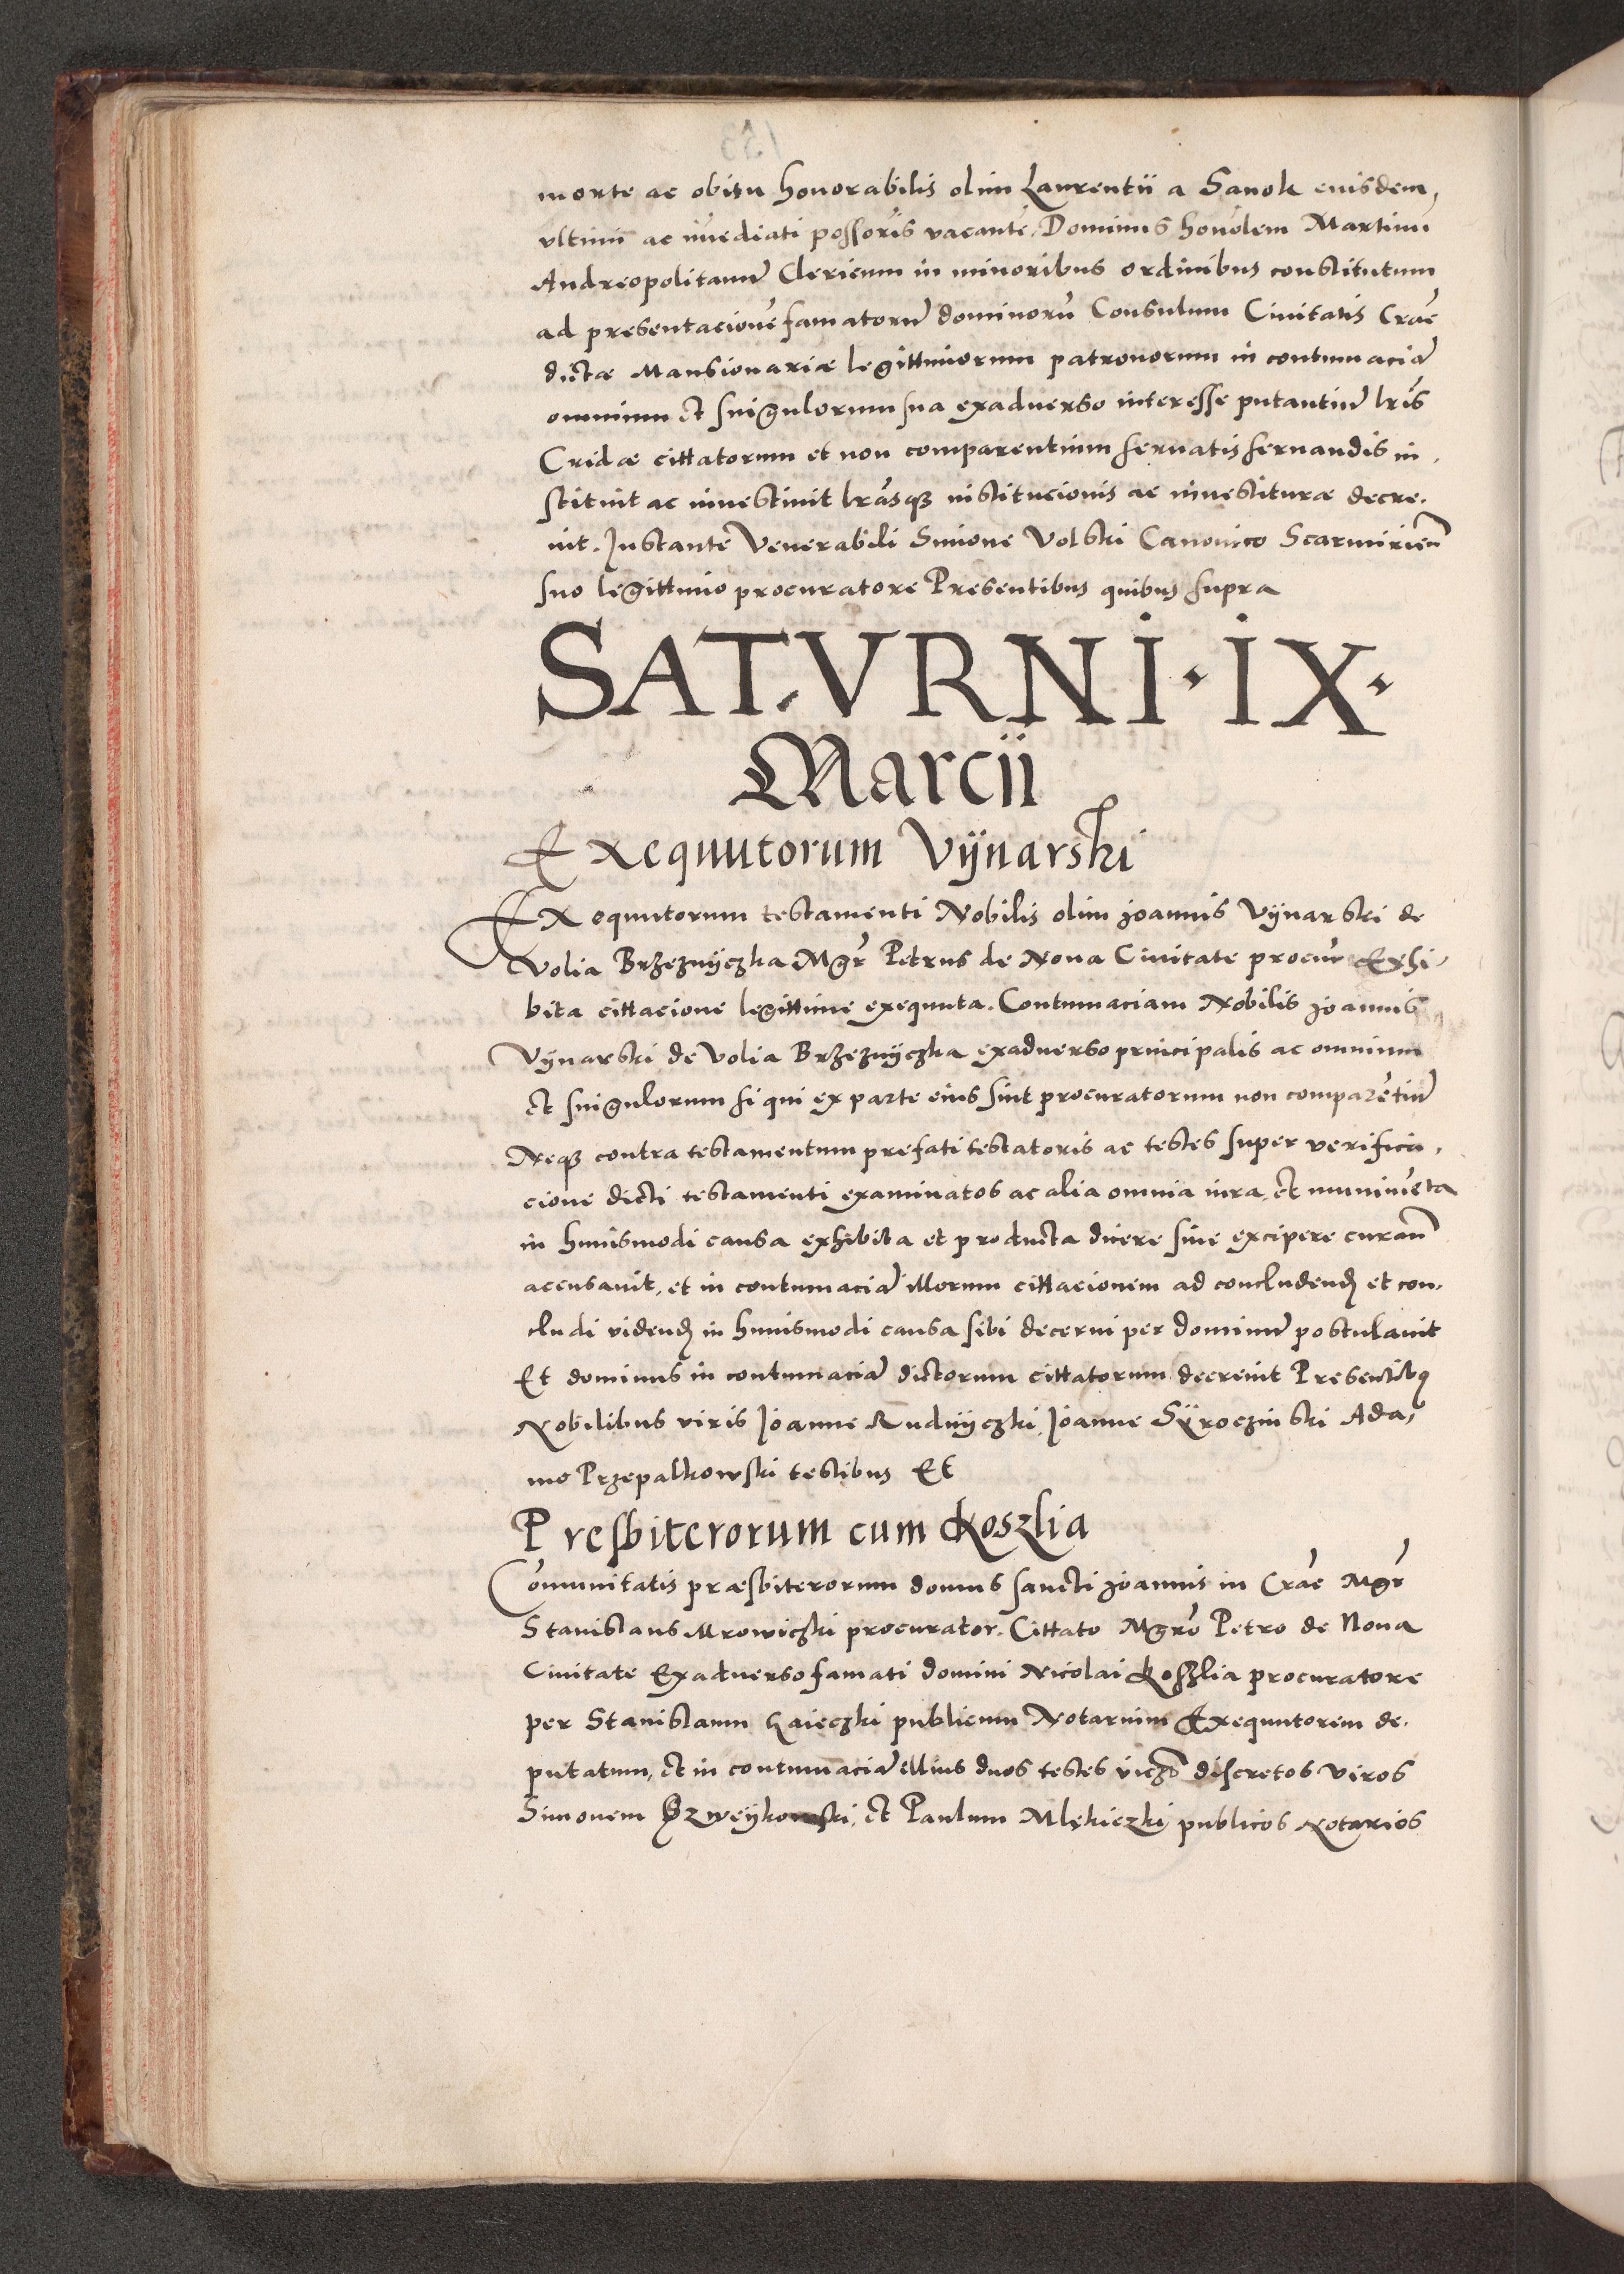 morte ac obitu honorabilis olim Laurentii a Sanok euisdem,
vltimi ac im̄ediati possoris vacantē, Dominus honōlem Martinū
Andreopolitanū Clericum in minoribus ordinibus constitutum
ad presentacionē famatorū dominorū Consulum Ciuitatis Crāē
dictæ Mansionariæ legittimorum patronorum in contumaciā
omnium et singulorum sua exaduerso interesse putantiū lrīs
Cridæ cittatorum et non comparentium seruatis seruandis in,
stituit ac inuestiuit lrāsqꝫ institucionis ac inuestituræ decre,
uit. Instante Venerabili Simone Volski Canonico Scarmirieñ
suo legittimo procuratore Presentibus quibus supra
SATVRNI · IX ·
Marcii
Exequutorum Vÿnarski
Exequutorum testamenti Nobilis olim Joannis Vÿnarski de
Volia Brzeznÿczka Mgr̄ Petrus de Noua Ciuitate procur̄ Exhi,
bita cittacione legittime exequuta. Contumaciam Nobilis Joannis
Vÿnarski de Volia Brzeznÿczka exaduerso principalis ac omnium
et singulorum si qui ex parte eius sint procuratorum non comparētiū
Neqꝫ contra testamentum prefati testatoris ac testes super verifica,
cione dicti testamenti examinatos ac alia omnia iura, et munimēta
in huiusmodi causa exhibita et producta dicere siue excipere curañ
accusauit, et in contumaciā illorum cittacionem ad concludend̄ et con,
cludi videnđ in huiusmodi causa sibi decerni per dominū postulauit
Et dominus in contumaciā dictorum cittatorum decreuit Presentibꝰ
Nobilibus viris Joanne Rudnÿczki, Joanne Sÿroczinski Ada,
mo Przepalkowski testibus Et
Presbiterorum cum Koszlia
Cōmunitatis præsbiterorum domus sancti Joannis in Crāē Mgr̄
Stanislaus Mrowiczki procurator. Cittato Mgrō Petro de Noua
Ciuitate Exaduerso famati domini Nicolai Koszlia procuratore
per Stanislaum Gaieczki publicum Notarium Exequutorem de,
putatum, et in contumaciā illius duos testes viczꝫ discretos viros
Simonem Szweÿkowski, et Paulum Mlękiczki publicos Notarios